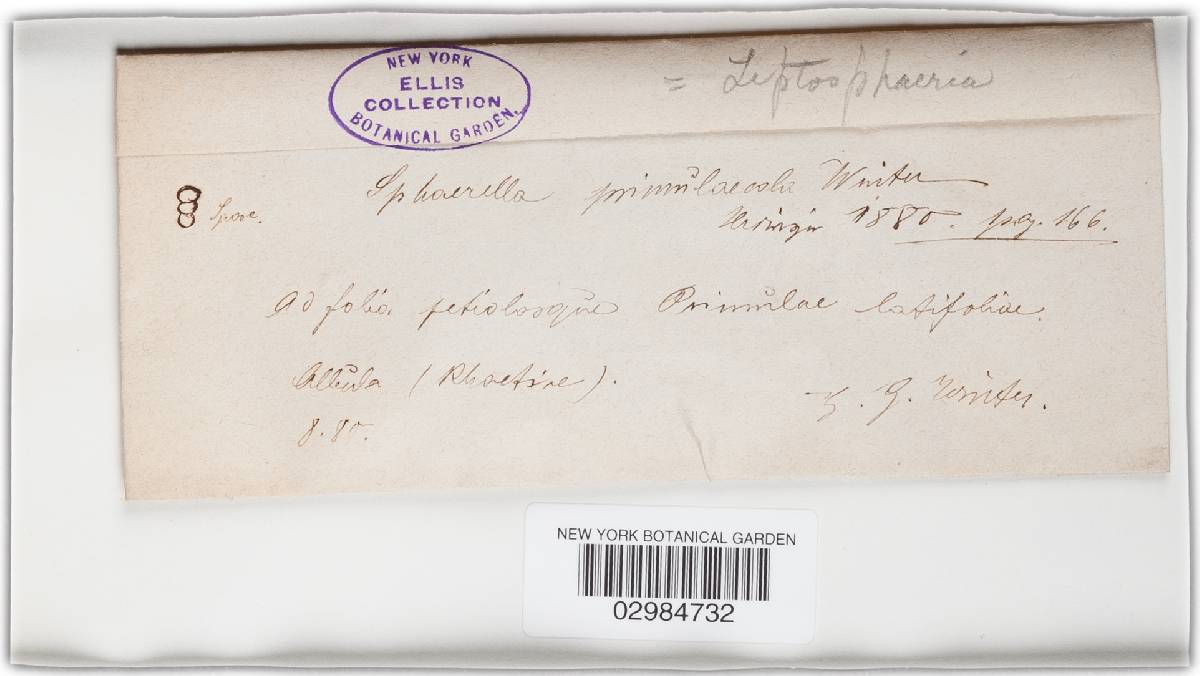 NEW YORK
ELLIS
COLLECTION
BOTANICAL GARDEN.
= Leptosphaeria
Sphaerella primulaecola Winter
Spore.
1880. pag. 166.
Ad folia petiolosque Primulae latifoliae.
Albula (Rhaetiae).
G. Winter.
8.80.
NEW YORK BOTANICAL GARDEN
02984732